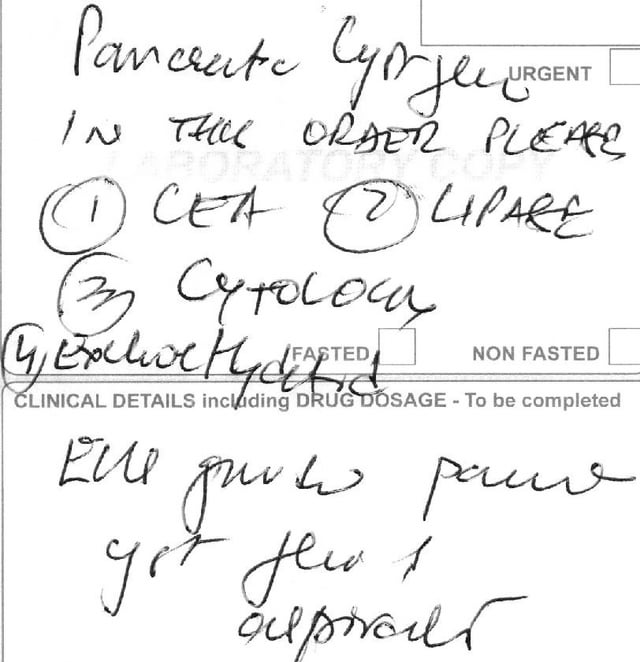 Pancreatic Cyst fluid
URGENT
IN THIS ORDER PLEASE
LABORATORY COPY
① CEA ② LIPASE
③ CYTOLOGY
④ Hydatid
FASTED NON FASTED
CLINICAL DETAILS including DRUG DOSAGE - To be completed
EUS guided
cyst fluid